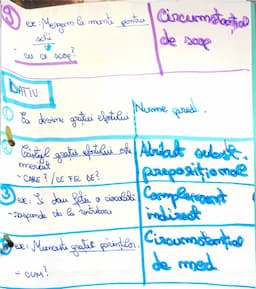 5 ex: Mergem la munte pentru
schi
- cu ce scop?
Circumstanțial
de scop
DATIV
1 Ea devine grație efortului
Nume pred.
Câștigul grație efortului e
meritat
- CARE? / CE FEL DE?
Atribut subst.
prepozițional
3 ex: Îi dau fetei o ciocolată
- răspunde de la întrebarea
Complement
indirect
ex: Muncesc grație părinților.
- CUM?
Circumstanțial
de mod